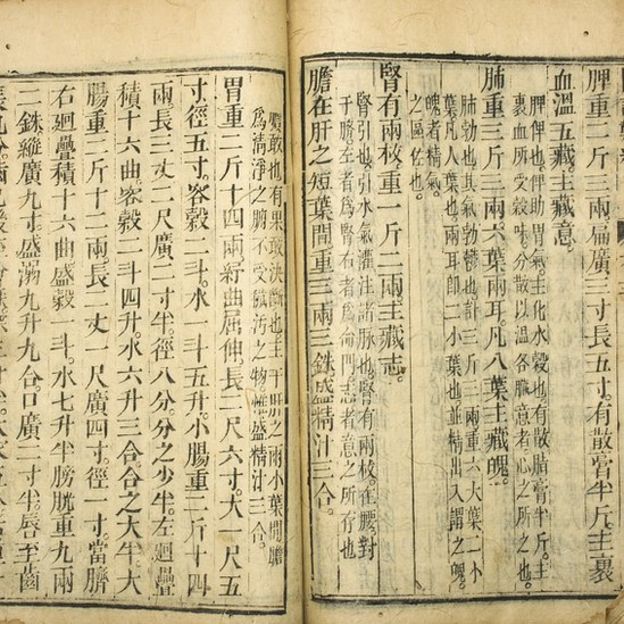 脾重二斤三兩扁廣三寸長五寸。有散膏半斤。主裹
血溫五藏。主藏意。
脾俾也。俾助胃氣。主化水穀也。有散脂膏半斤。主
裹血所受穀味。分散以溫各臟。意者。心之所之也。
肺重三斤三兩六葉兩耳。凡八葉主藏魄。
肺勃也。其氣勃鬱也。計三斤三兩重六大葉二小
葉凡八葉也。兩耳即二小葉也。並精出入謂之魄。
魄者精氣。
之匡佐也。
腎有兩枚。重一斤二兩。主藏志。
腎引也。引水氣灌注諸脉也。腎有兩枚。在腰對
于臍。左者爲腎。右者爲命門。志者意之所存也
膽在肝之短葉間。重三兩三銖。盛精汁三合。
膽敢也。有果敢決斷也。主于肝之兩小葉間。膽
爲清淨之腑。不受穢污之物。惟盛精汁三合。
胃重二斤十四兩。紆曲屈伸。長二尺六寸。大一尺五
寸。徑五寸。容穀二斗。水一斗五升。小腸重二斤十四
兩。長三丈二尺。廣二寸半。徑八分分之少半。左廻疊
積十六曲。容穀二斗四升。水六升三合合之大半。大
腸重二斤十二兩。長一丈一尺。廣四寸。徑一寸。當臍
右廻疊積十六曲。盛穀一斗。水七升半。膀胱重九兩
二銖。縱廣九寸。盛溺九升九合。口廣二寸半。唇至齒
長九分。